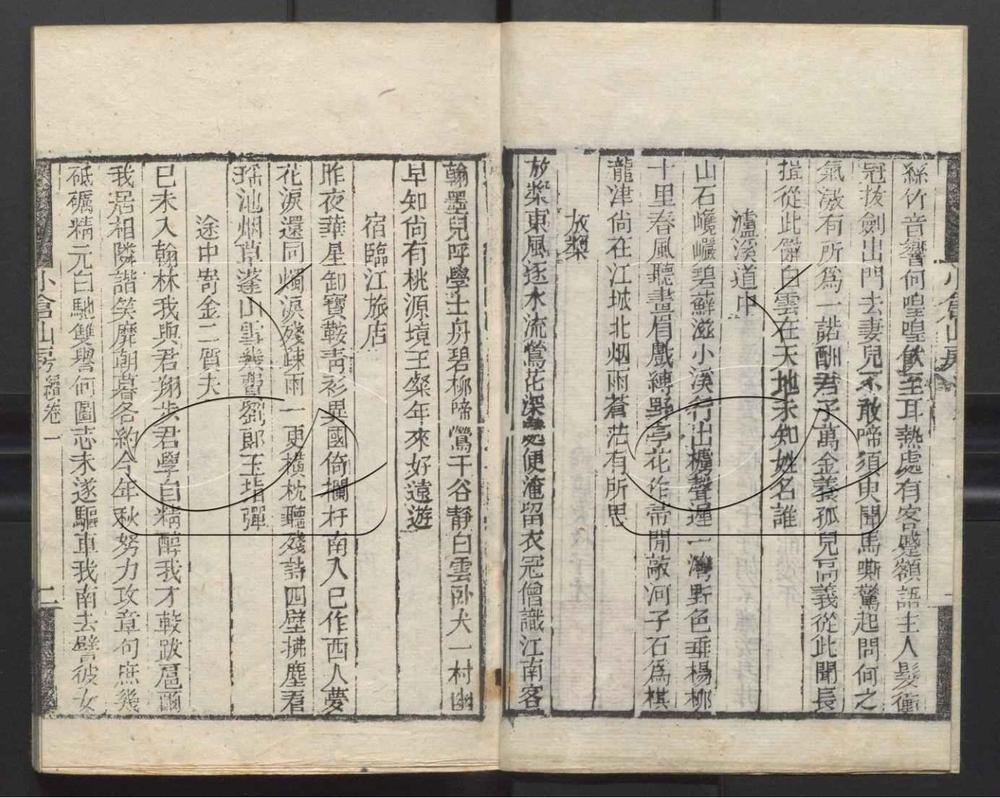 絲竹音響何喤喤飲至耳熱處有客蹙額語主人髮衝
冠拔劍出門去妻兒不敢啼須臾聞馬嘶驚起問何之
氣激有所為一諾酬君子萬金義孤兒高義從此聞長
揖從此辭白雲在天地永知姓名誰
瀘溪道中
山石巉巗碧蘚滋小溪行出櫓聲遲一灣野色垂楊柳
十里春風聽畫眉戲縛野亭花作帚閒敲河子石為棋
龍津尚在江城北烟雨蒼茫有所思
放槳
放槳東風逐水流鶯花深處便淹留衣冠僧識江南客
翰墨兒呼學士舟碧柳啼鶯千谷靜白雲卧犬一村幽
早知尚有桃源境王粲年來好遠遊
宿臨江旅店
昨夜華星卸寶鞍青衫異國倚欄杆南入已作西人夢
花淚還同燭淚殘疎雨一更橫枕聽殘詩四壁拂塵看
瑤池烟草蓬山雪幾費劉郎玉指彈
途中寄金二質夫
已未入翰林我與君翔步君學白精醇我才較跋扈爾
我居相隣諧笑靡朝暮各約今年秋努力攻章句庶幾
砥礪精元白馳雙譽何圖志未遂驅車我南去譬彼女
小倉山房
卷一
二